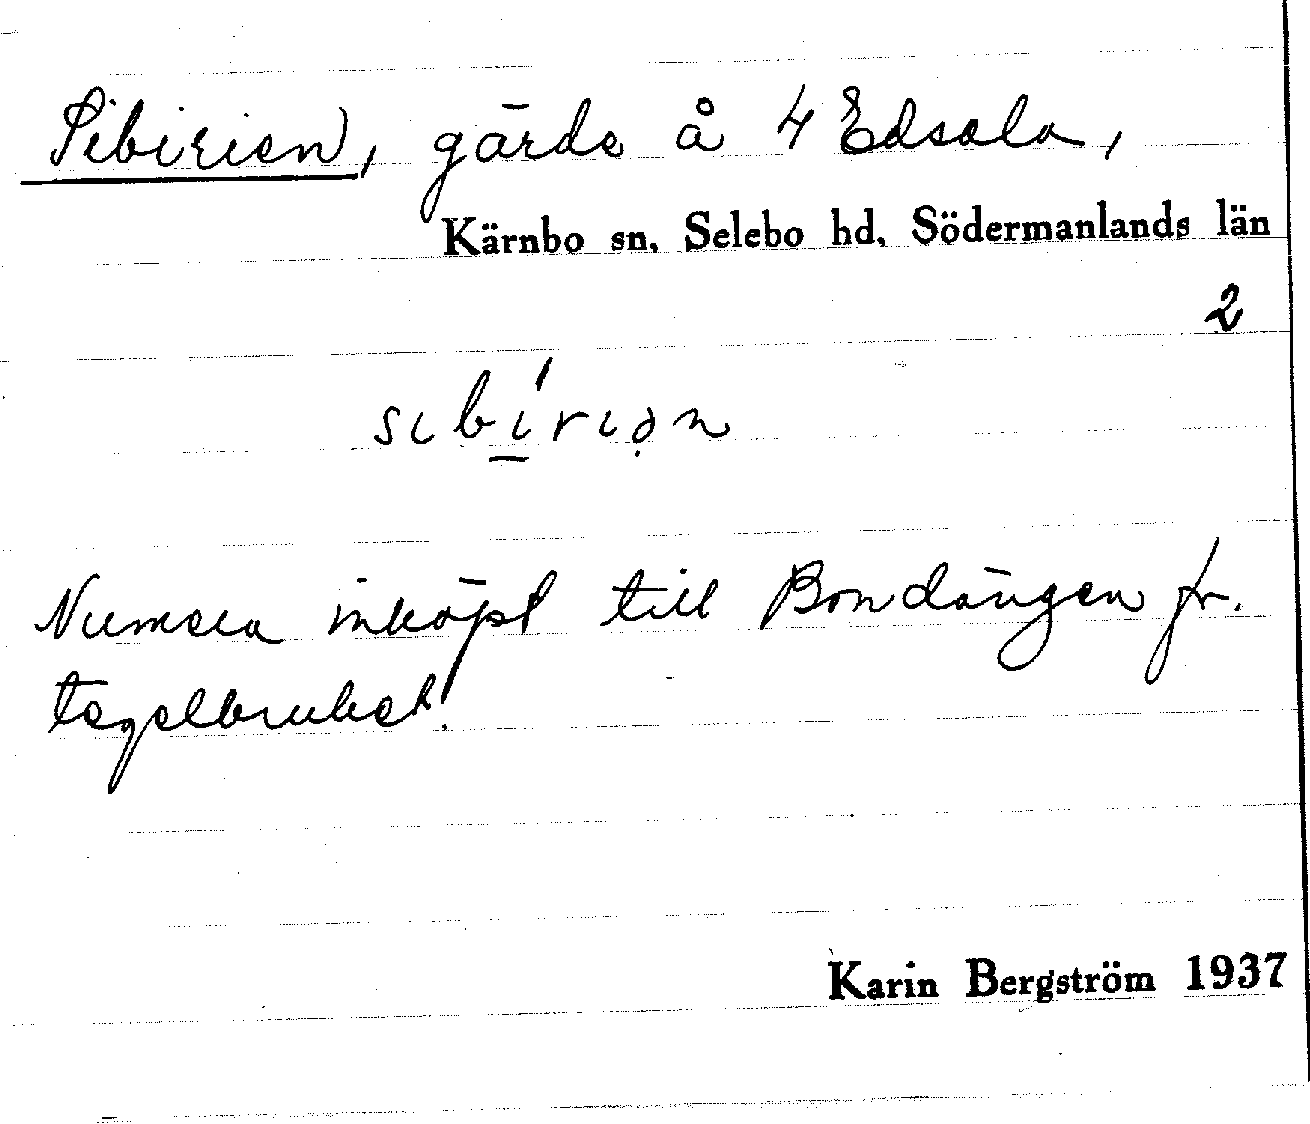 Sibirien, gärde å 4 Edsala,
Kärnbo sn. Selebo hd. Södermanlands län
2
sibíriən
Numera inköpt till Bondängen fr.
tegelbruket.
Karin Bergström 1937